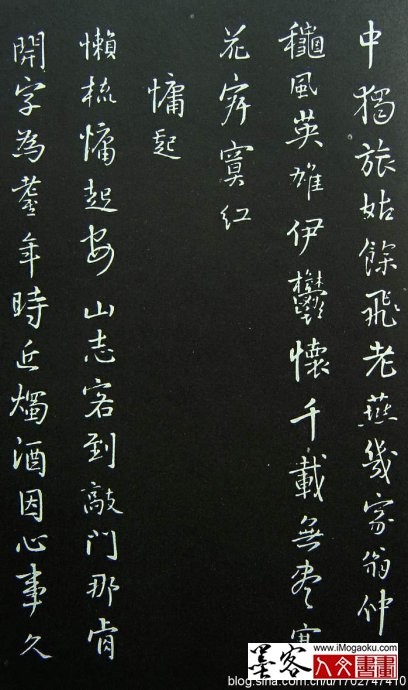 中獨旅姑餘飛老燕幾家翁仲
龝風英雄伊鬱懷千載無盡宮
花寂寞紅
慵起
懶梳慵起安山志客到敲門那肯
開字為年時近燭酒因心事久
墨客
www.iMogaoku.com
人文書畫
blog.sina.com.cn/u/1702747410